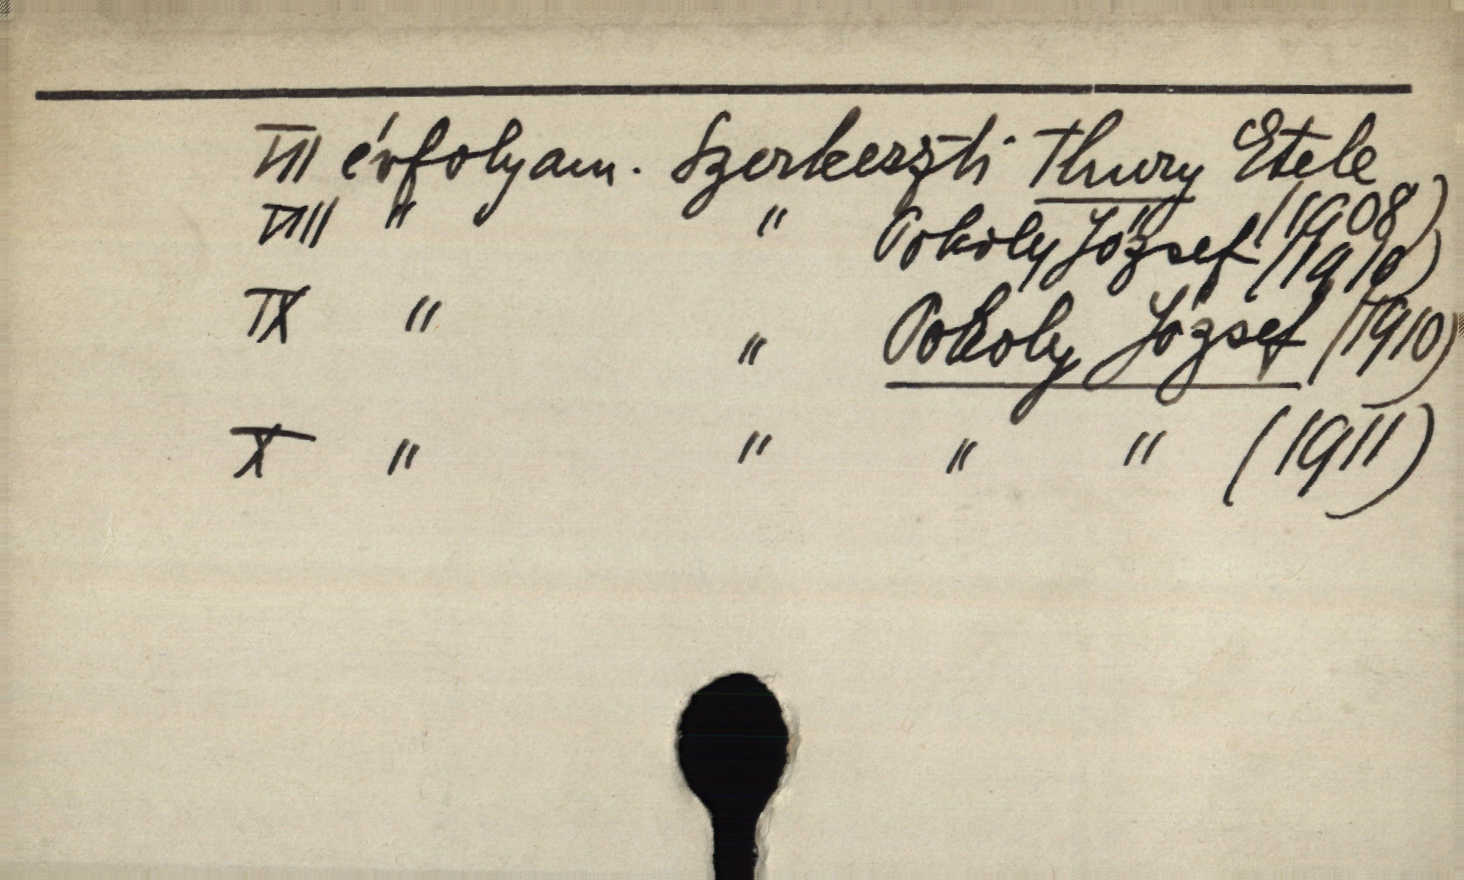 VII évfolyam. Szerkeszti Thury Etele (1908)
VIII " " Pokoly József (1910)
IX " " Pokoly József (1910)
X " " " " (1911)